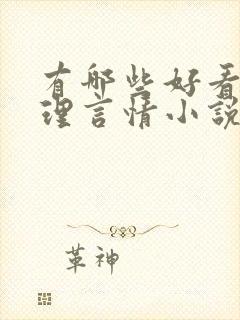 有哪些好看
理言情小说
革神